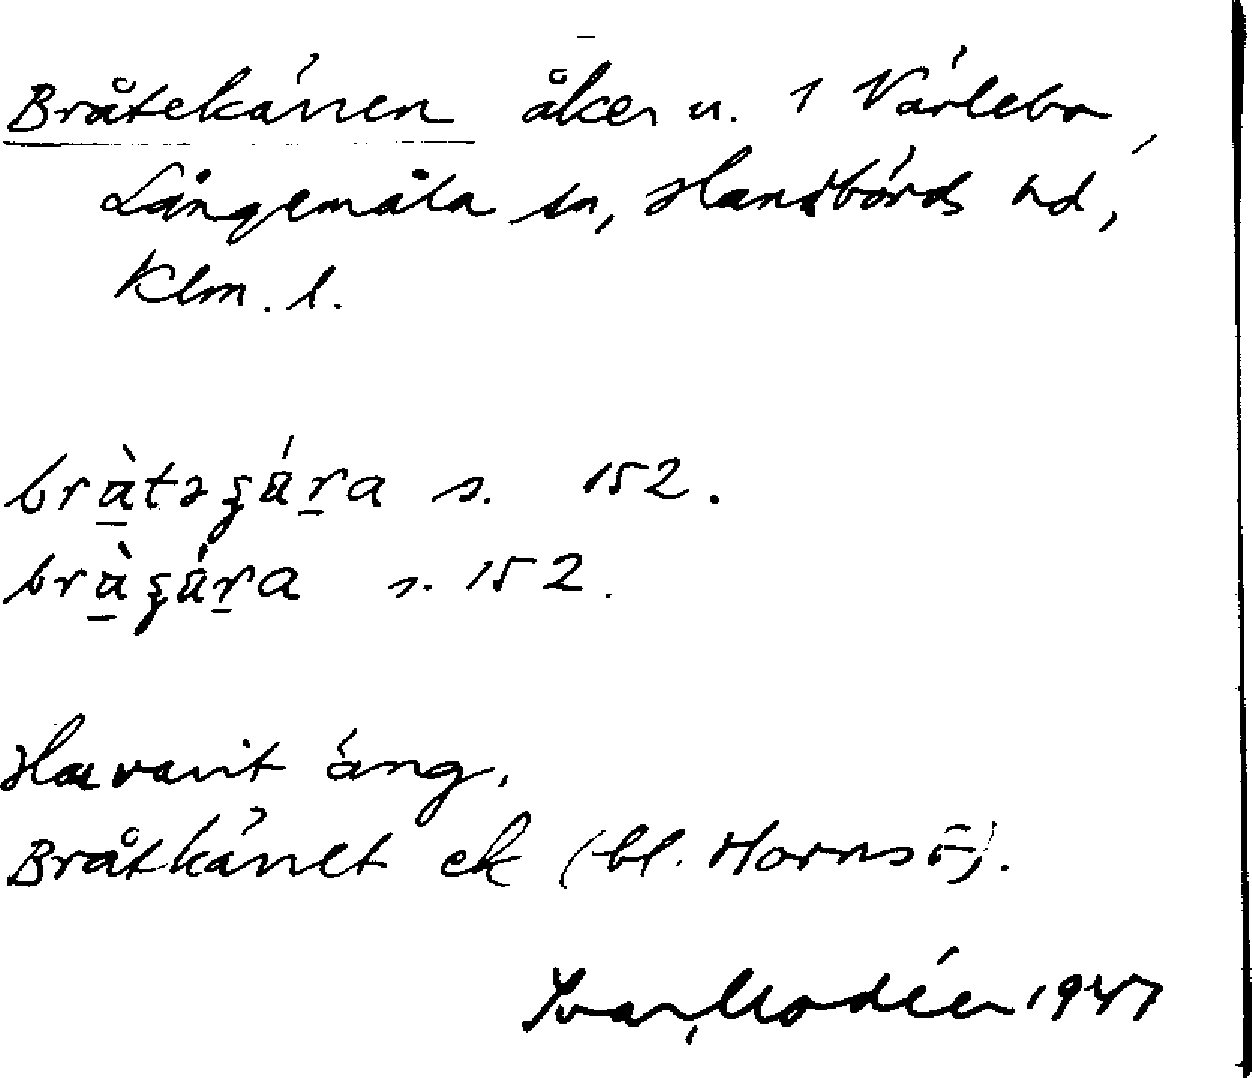 Bråtekärren åker u. 1 Värlebo,
Långemåla sn, Handbörds hd,
Klm. l.
s. 152.
s. 152.
Har varit äng.
Bråtkärret ek (bl. Hornsö).
Ivar Modéer 1947